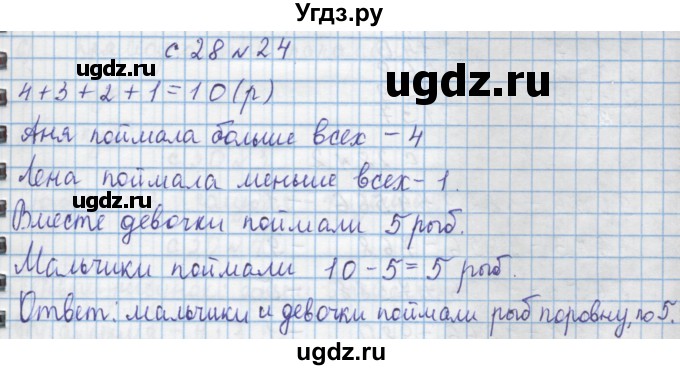 Угдз.ру
с 28 № 24
ugdz.ru
ugdz.ru
4+3+2+1=10(р)
Аня поймала больше всех – 4
ugdz.ru
ugdz.ru
Лена поймала меньше всех – 1.
Вместе девочки поймали 5 рыб.
ugdz.ru
Мальчики поймали 10 – 5 = 5 рыб.
ugdz.ru
Ответ: мальчики и девочки поймали рыб поровну, по 5.
ugdz.ru
ugdz.ru